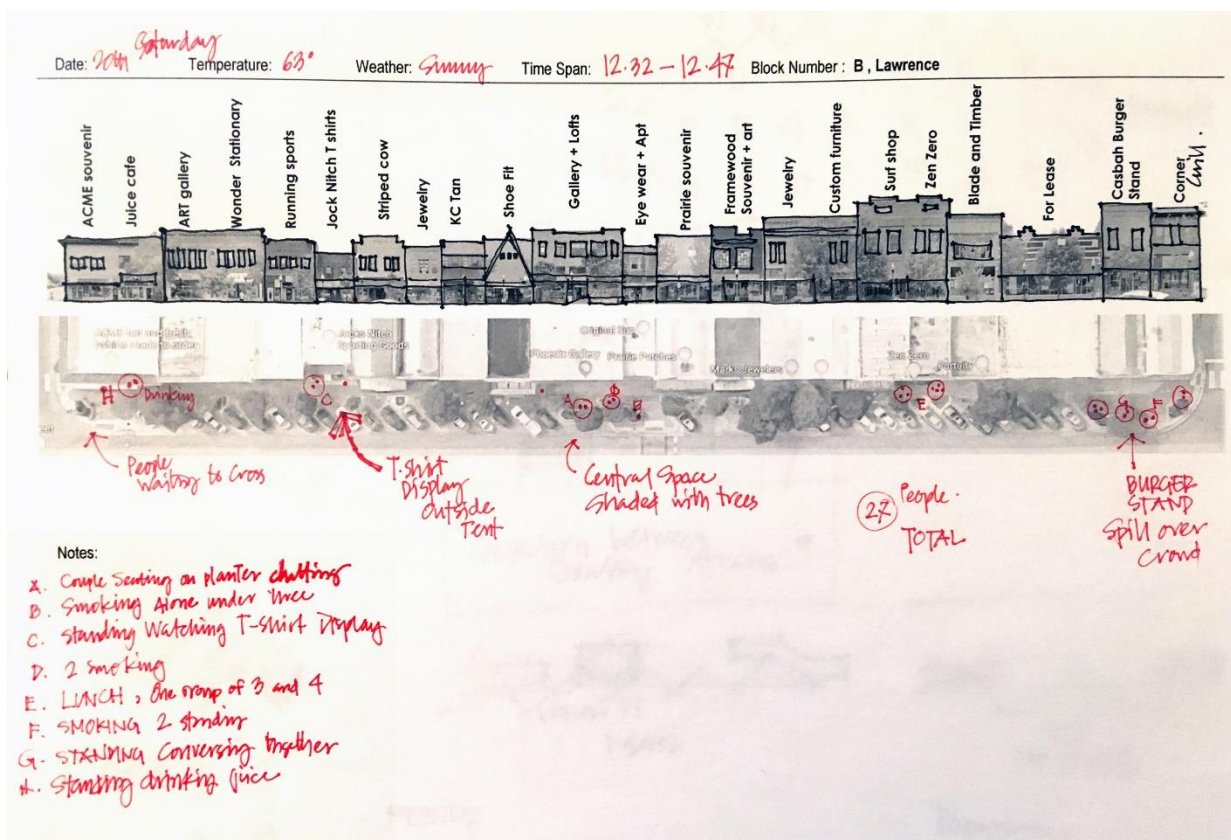 Saturday
Date: 20th Temperature: 63° Weather: Sunny Time Span: 12.32 – 12.47 Block Number : B , Lawrence
ACME souvenir
Juice cafe
ART gallery
Wonder Stationary
Running sports
Jock Nitch T shirts
Striped cow
Jewelry
KC Tan
Shoe Fit
Gallery + Lofts
Eye wear + Apt
Prairie souvenir
Framewood
Souvenir + art
Jewelry
Custom furniture
Surf shop
Zen Zero
Blade and Timber
For Lease
Casbah Burger
Stand
Corner
Grill.
Jocks Nitch
Sporting Goods
Phoenix Gallery
Prairie Patches
Marks Jewelers
Zen Zero
H
Drinking
C
A
B
E
G
F
People
Waiting to Cross
T-Shirt
Display
Outside
Tent
Central Space
Shaded with trees
27 People.
TOTAL
BURGER
STAND
Spill over
Crowd
Notes:
A. Couple Seating on planter chatting
B. Smoking Alone under
C. Standing Watching T-Shirt Display
D. 2 smoking
E. LUNCH, One group of 3 and 4
F. SMOKING 2 standing
G. STANDING Conversing together
H. Standing drinking juice